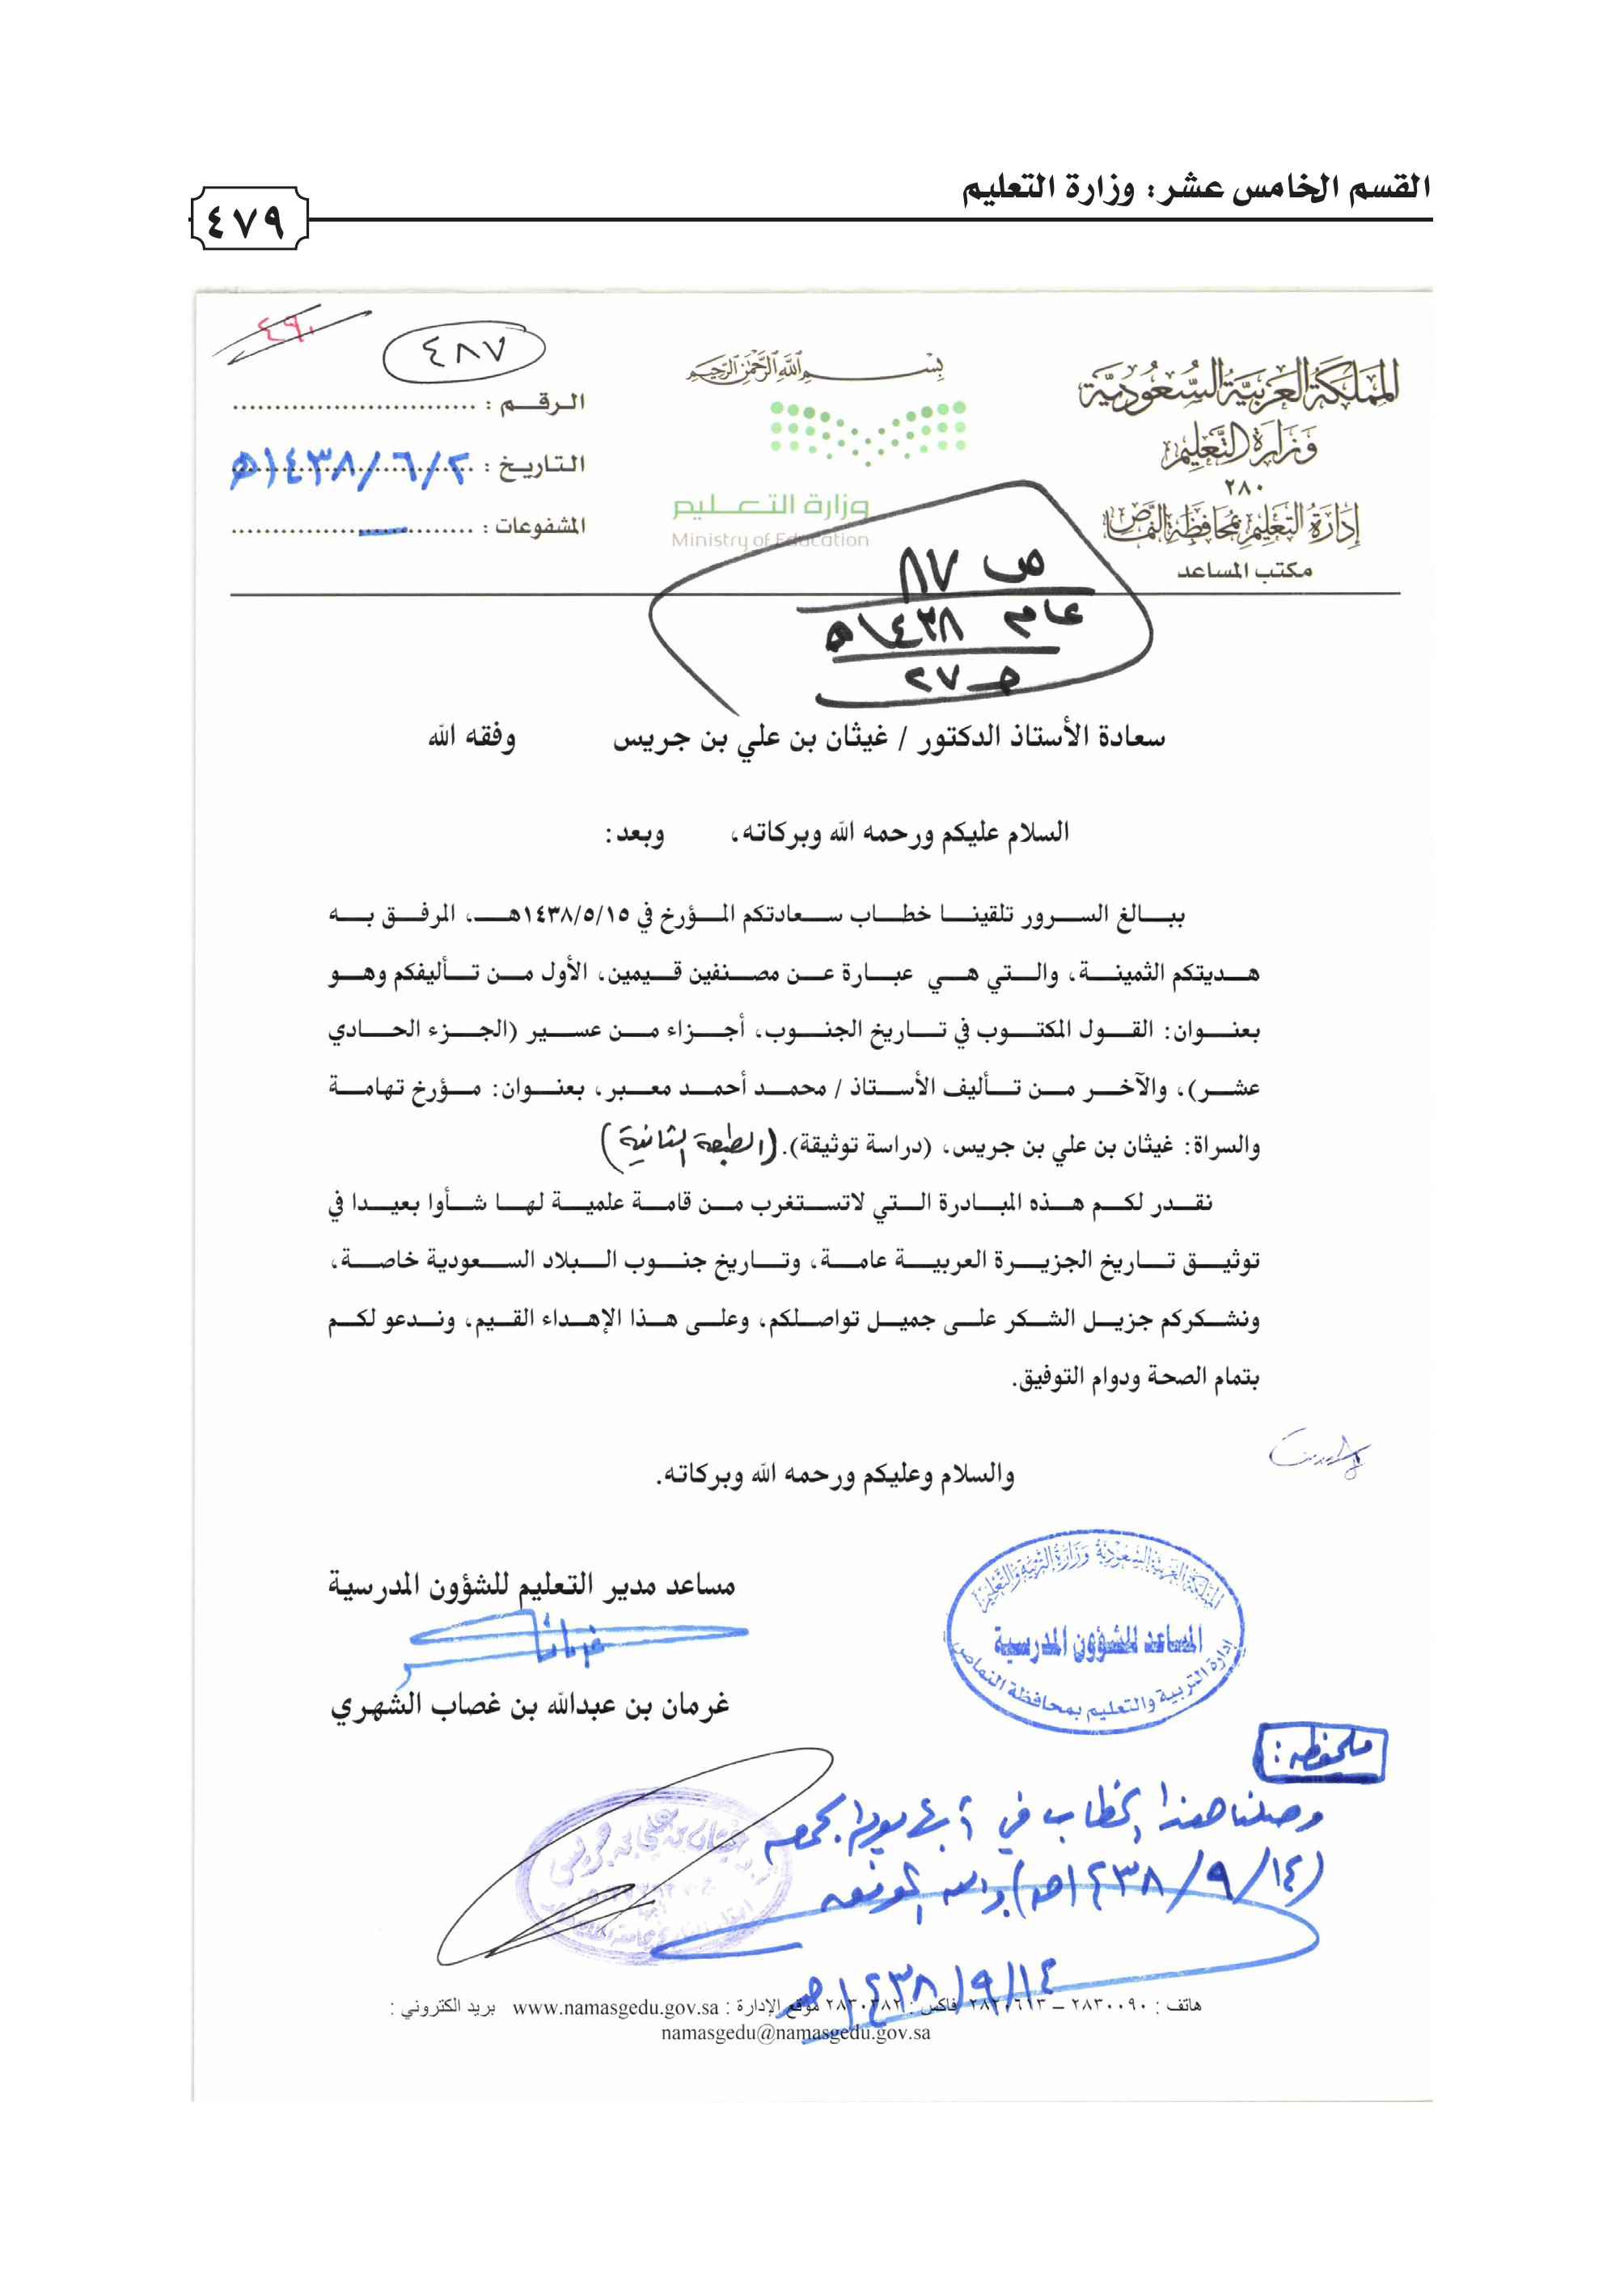 القسم الخامس عشر: وزارة التعليم
٤٧٩
٤٩٠
٤٨٧
المملكة العربية السعودية
وزارة التعليم
٢٨٠
إدارة التعليم بمحافظة النماص
مكتب المساعد
بسم الله الرحمن الرحيم
وزارة التعـــليم
Ministry of Education
الرقـــم :
التاريخ : ١٤٣٨/٦/٢هـ
المشفوعات : ـــ
ص ٨٧
عام ١٤٣٨هـ
هـ ٢٧
سعادة الأستاذ الدكتور / غيثان بن علي بن جريس وفقه الله
السلام عليكم ورحمه الله وبركاته، وبعد:
ببالغ السرور تلقينا خطاب سعادتكم المؤرخ في ١٤٣٨/٥/١٥هـ، المرفق به
هديتكم الثمينة، والتي هي عبارة عن مصنفين قيمين، الأول من تأليفكم وهو
بعنوان: القول المكتوب في تاريخ الجنوب، أجزاء من عسير (الجزء الحادي
عشر)، والآخر من تأليف الأستاذ / محمد أحمد معبر، بعنوان: مؤرخ تهامة
والسراة: غيثان بن علي بن جريس، (دراسة توثيقة). (الطبعة الثانية)
نقدر لكم هذه المبادرة التي لاتستغرب من قامة علمية لها شأوا بعيدا في
توثيق تاريخ الجزيرة العربية عامة، وتاريخ جنوب البلاد السعودية خاصة،
ونشكركم جزيل الشكر على جميل تواصلكم، وعلى هذا الإهداء القيم، وندعو لكم
بتمام الصحة ودوام التوفيق.
والسلام وعليكم ورحمه الله وبركاته.
مساعد مدير التعليم للشؤون المدرسية
غرمان بن عبدالله بن غصاب الشهري
المملكة العربية السعودية وزارة التربية والتعليم
المساعد للشؤون المدرسية
إدارة التربية والتعليم بمحافظة النماص
ملحوظة :
وصلنا هذا الخطاب في أبها يوم الجمعه
(١٤٣٨/٩/١٤هـ) والله الموفق
١٤٣٨/٩/١٤هـ
أ.د. غيثان بن علي بن جريس
هاتف : ٢٨٣٠٠٩٠ – ٢٨٢٠٦١٣ فاكس : ٢٨٣٠٣٨٢ موقع الإدارة : www.namasgedu.gov.sa بريد الكتروني :
namasgedu@namasgedu.gov.sa